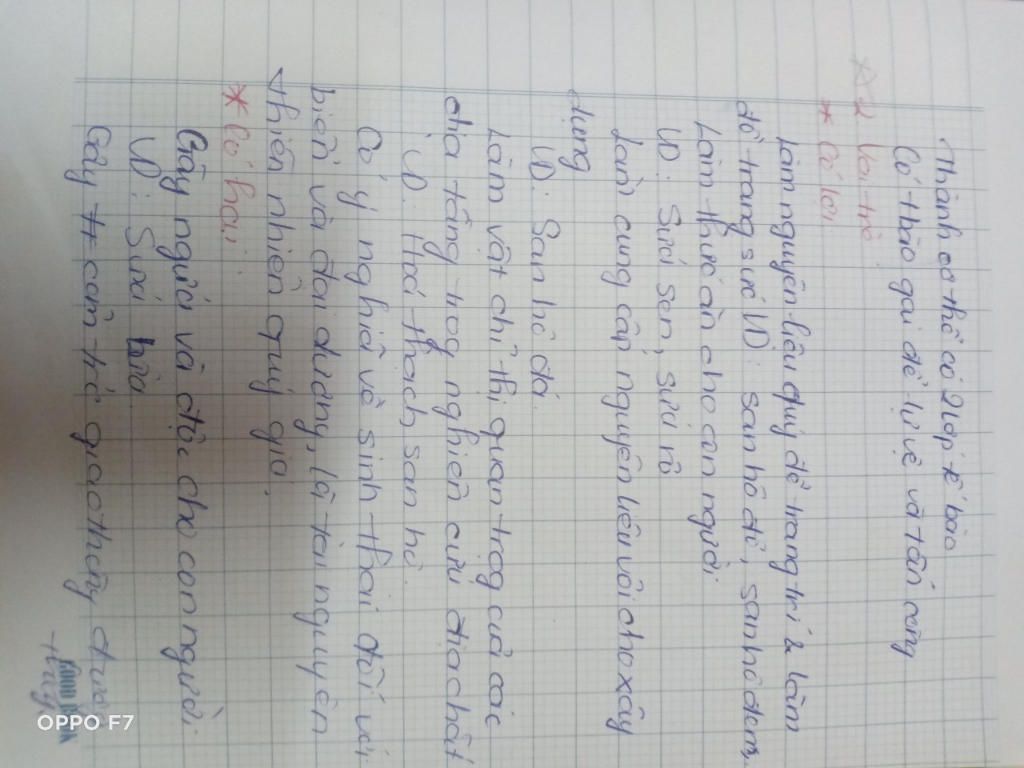 Thành cơ thể có 2 lớp tế bào
Có thào gai để tự vệ và tấn công
2 Vai trò
* Có lợi
Làm nguyên liệu quý để trang trí & làm
đồ trang sức VD: san hô đỏ, san hô đen,
Làm thức ăn cho con người
VD: Sứa sen, sứa rô
Làm cung cấp nguyên liệu vôi cho xây
dựng
VD: San hô đá.
Làm vật chỉ thị quan trọg của các
địa tầng trog nghiên cứu địa chất
VD: Hoá thạch san hô.
Có ý nghĩa về sinh thái đối với
biển và đại dương, là tài nguyên
thiên nhiên quý giá.
* Có hại:
Gây ngứa và độc cho con người
VD: Sứa lửa
Gây tr cản trở giao thông đường
thủy
OPPO F7